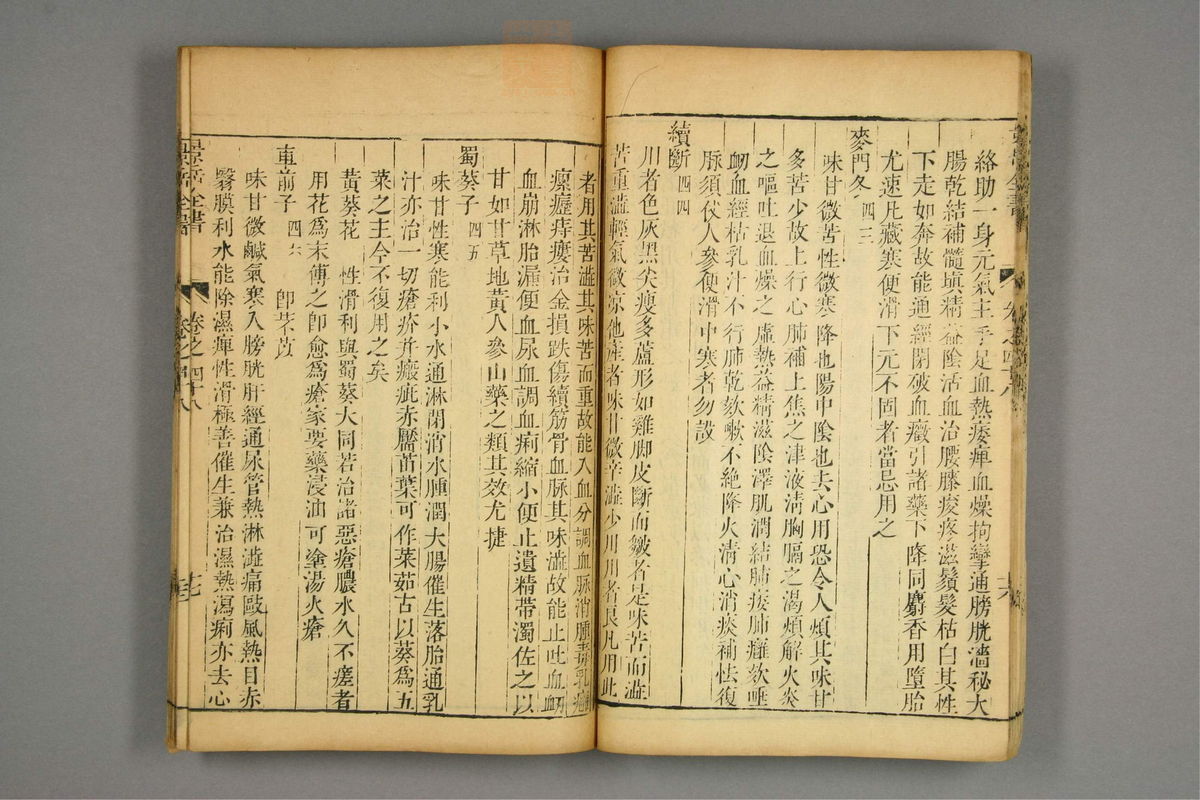 絡助一身元氣主手足血熱痿痺血燥拘攣通膀胱濇秘大
腸乾結補髓塡精益陰活血治腰膝痠疼滋鬚髮枯白其性
下走如奔故能通經閉破血癥引諸藥下降同麝香用墮胎
尤速凡藏寒便滑下元不固者當忌用之
麥門冬 四三
味甘微苦性微寒降也陽中陰也去心用恐令人煩其味甘
多苦少故上行心肺補上焦之津液清胸膈之渴煩解火炎
之嘔吐退血燥之虛熱益精滋陰澤肌潤結肺痿肺癰欬唾
衂血經枯乳汁不行肺乾欬嗽不絶降火清心消痰補怯復
脉須仗人參便滑中寒者勿設
續斷 四四
川者色灰黑尖瘦多蘆形如雞脚皮斷而皺者是味苦而澁
苦重澁輕氣微涼他産者味甘微辛澁少川用者良凡用此
者用其苦澁其味苦而重故能入血分調血脉消腫毒乳癰
瘰癧痔瘻治金損跌傷續筋骨血脉其味澁故能止吐血衂
血崩淋胎漏便血尿血調血痢縮小便止遺精帶濁佐之以
甘如甘草地黃人參山藥之類其效尤捷
蜀葵子 四五
味甘性寒能利小水通淋閉消水腫潤大腸催生落胎通乳
汁亦治一切瘡疥并瘢疵赤靨苗葉可作菜茹古以葵爲五
菜之主今不復用之矣
黃葵花 性滑利與蜀葵大同若治諸惡瘡膿水久不瘥者
用花爲末傅之即愈爲瘡家要藥浸油可塗湯火瘡
車前子 四六 即芣苡
味甘微鹹氣寒入膀胱肝經通尿管熱淋澁痛敺風熱目赤
翳膜利水能除濕痺性滑極善催生兼治濕熱瀉痢亦去心
景岳全書 卷之四十八